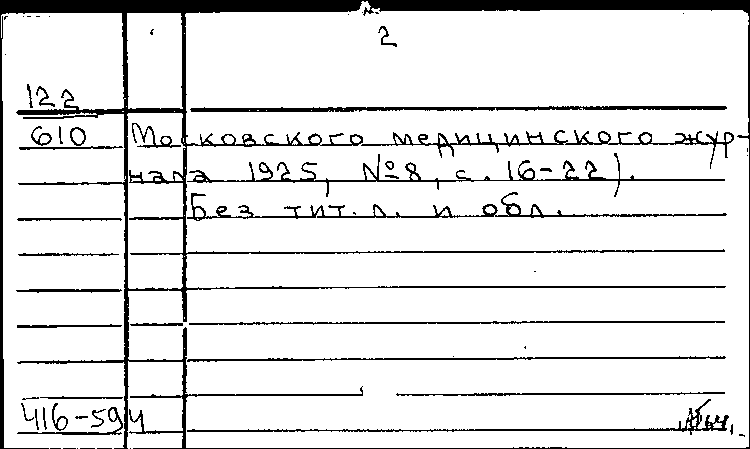 2
122
610 Московского медицинского жур-
нала 1925, №8, с. 16-22).
Без тит. л. и обл.
416-594